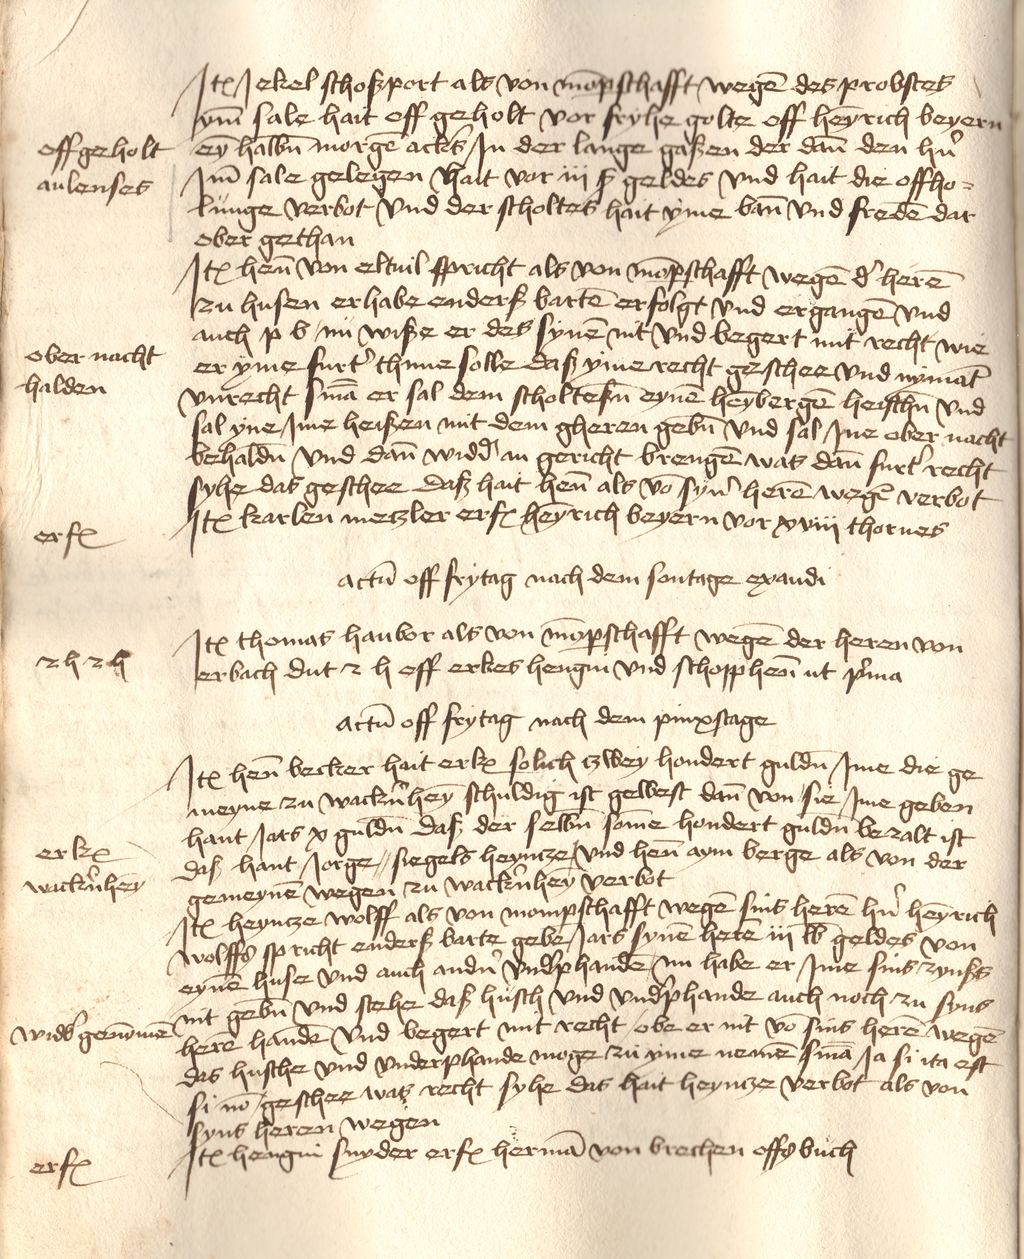 Itz Jekel schoßport als von mo̅pschafft wege̅ des probstes
ym̅ sale hait off geholt vor fryhe golte off heyrich beyern
off geholt
ey̅ halbn̅ morge̅ ackers In der lange gaßen der dan̅ den hn̅
aulenses
Im̅ sale gelegen hait vor iii ß geldes und hait die offho=
lunge verbot Und der scholtes hait yme ban̅ Und frede̅ dar
ober gethan
Itz hen̅ von eltuil spricht als von mo̅pschafft wege̅ d' here̅
zu husen er habe enderß barte̅ erfolgt Und ergange̅ Und
auch p b nu wiße er des syne̅ nit Und begert mit recht wie
ober nacht
er yme furt' thune solle daß yme recht geschee Und nyma̅t
halden
unrecht sma̅ er sal dem scholteßn̅ eyne̅ heybergen̅ heischn̅ Und
sal yne Ime heißen mit dem gheren gebn̅ Und sal Ine ober nacht
behaldn̅ Und dan̅ widd' an gericht brenge̅ was dan̅ furt' recht
syhe das geschee daß hait hen̅ als vo̅ syn' here̅ wege̅ verbot
erfz
Itz karlen metzler erfz heyrich beyern vor xviii thornes
Actu̅ off frytag nach dem sontage exaudi
Itz thomas haubor als von mo̅pschafft wege̅ der heren von
2 h 2 h
erbach dut 2 h off erkes hengin Und schopphen̅ ut p'ma
Actu̅ off frytag nach dem pinxstage
Itz hen̅ becker hait erkz solich zwey hondert guldn̅ Ime die ge
meyne zu wackn̅hey̅ schuldig ist gewest dan̅ von sie Ime geben
hant Jars x guldn̅ daß der selbn̅ some̅ hondert guldn̅ bezalt ist
erkz
daß hant Jorge siegels heyncze Und hen̅ aym berge als von der
wackn̅hey̅
gemeyne̅ wegen zu wackn̅hey̅ verbot
Itz heyncze wolff als von mompschafft wege̅ sins here̅ hn̅ heyrich
wolffs spricht enderß barte gebe Jars syne̅ here̅ iii lb geldes von
eyne̅ huse Und auch andn̅ Und'phande̅ nu habe er Ime sins zynßs
nit gebn̅ Und stehe daß husch Und Und'phande auch noch zu syns
widd' genome̅
here̅ hande̅ Und begert mit recht obe er nit vo̅ sins here̅ wege̅
das husche Und Underphande moge zu yme neme̅ sma̅ Ja si ita est
si no̅ geschee was recht syhe das hait heyncze verbot als von
syns heren wegen
erfz
Itz hengin snyder erfz herma̅ von brechen offs buch